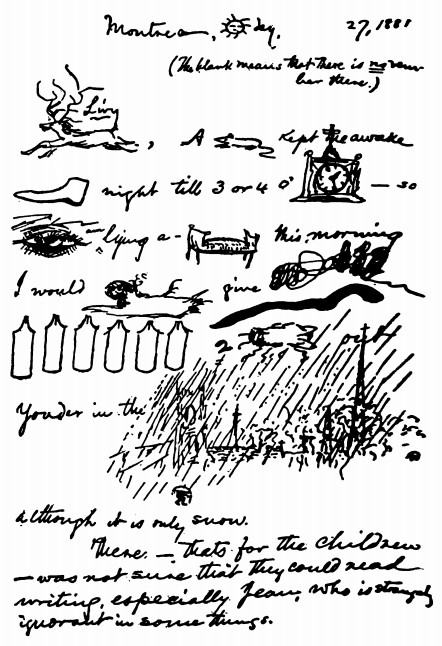 Montreal, day, 27, 1881
(The blank means that there is no number there.)
Livy
, A kept me awake
night till 3 or 4 o' — so
lying a- this morning
I would give
2 out
yonder in the
although it is only snow.
There. — that's for the children
— was not sure that they could read
writing, especially Jean, who is strangely
ignorant in some things.